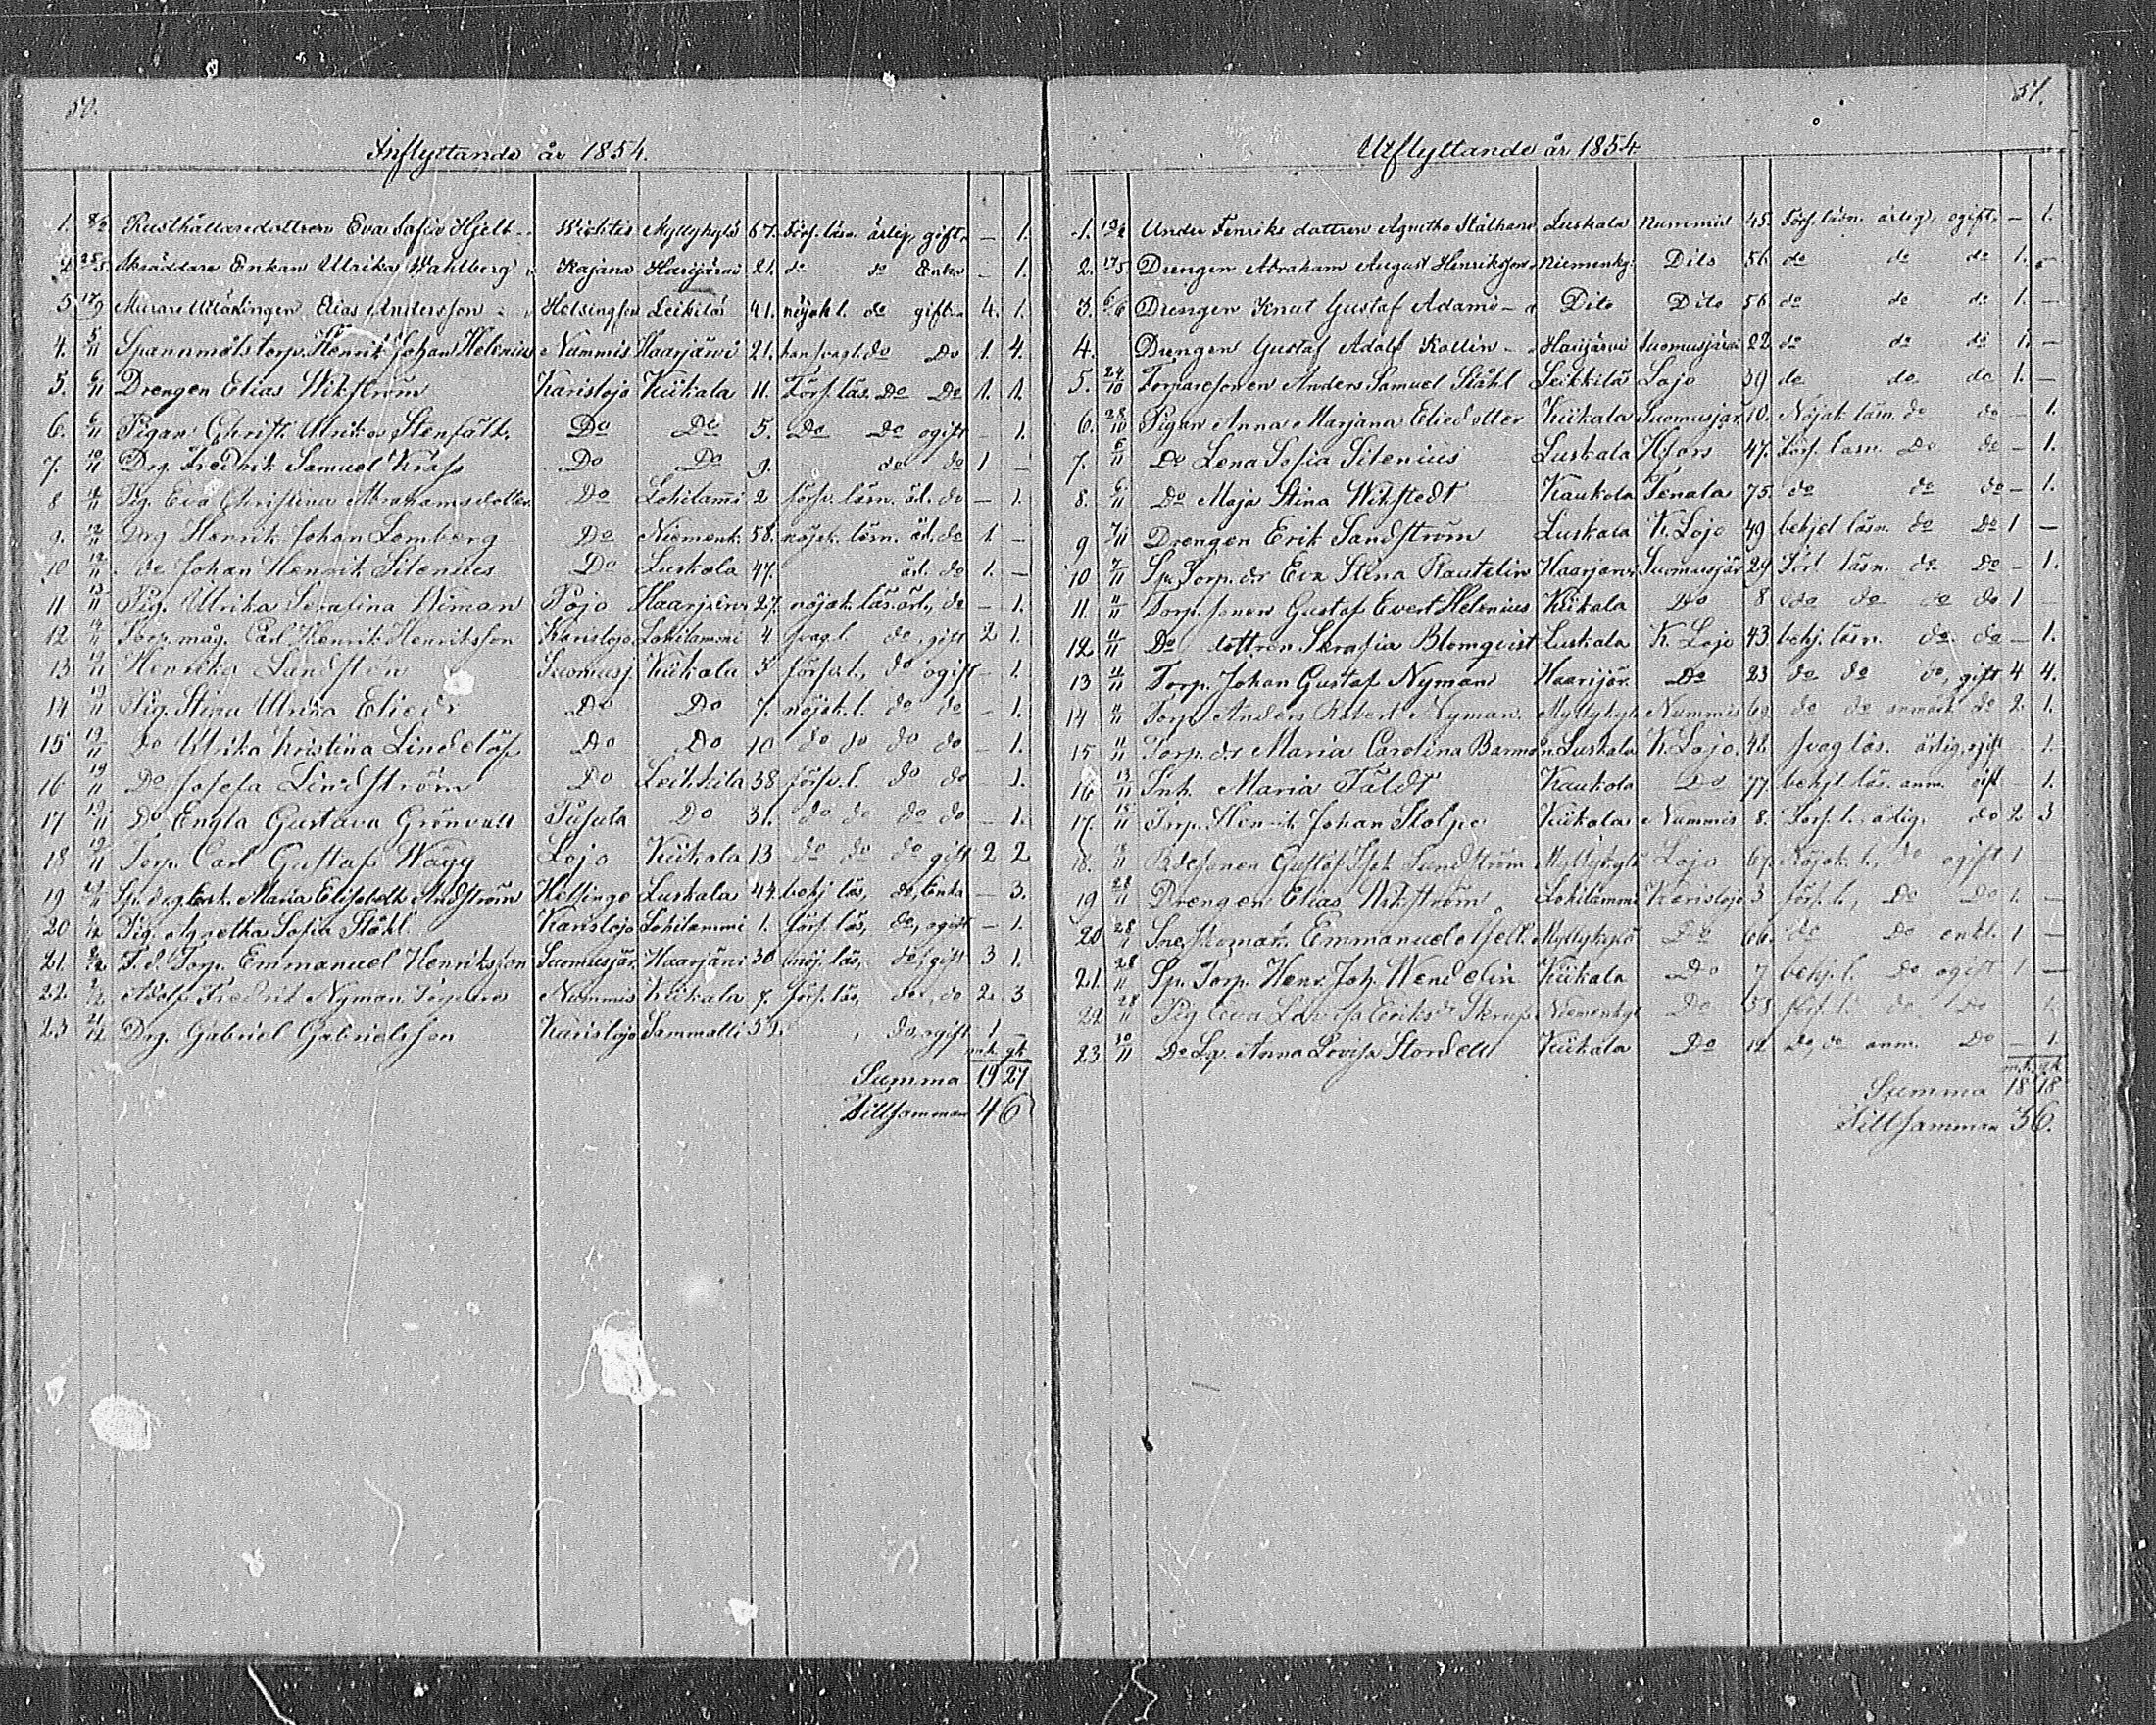 50.
Inflyttande år 1854.
1. 8/2 Rusthållaredottren Eva Sofia Hjelt Wichtis Myllykylä 67. Förs. läsn. ärlig, gift. — 1.
2 28/3. Skräddare Enkan Ulrika Wahlberg Kajana Haarijärvi 21. do do Enka — 1.
3 17/9 Murare Elias Andersson Helsingfors Leikilä 41. nöjakl. do gift 4. 1.
4. 5/11 Spannmåls torp. Henrik Johan Helenius Nummis Haarjärvi 21. do Do 1. 4.
5. 6/11 Drengen Elias Wikström Karislojo Kiikala 11. Förs. läs. Do Do 1. 1.
6. 6/11 Pigan Christ. Ulrika Stenfält. Do Do 5. Do Do ogift — 1.
7. 10/11 Drg. Fredrik Samuel Kräfs Do Do 9. do do 1 —
8 11 Pig. Eva Christina Abrahamsdotter Do Lohilami 2 förs. läsn. äd. do — 1.
9. 12/11 Drg Henrik Johan Lemberg Do Niemenk. 58. nöjak. läsn. äd. do 1 —
10 12/11 do Johan Henrik Silenius Do Luskala 47. äd. do 1. —
11 13/11 Pig. Ulrika Serafina Wiman Pojo Haarjärvi 27. nöjak. läs. ärl., do — 1.
12 11 Torp. måg. Carl Henrik Henriksson Karislojo Lohilammi 4 svagl. do, gift 2 1.
13 19/11 Henrika Lundström Suomusj. Kiikala 5 försv. l., do ogift — 1.
14 19/11 Pig. Stina Ulrika Eliedr Do Do 7. nöjak. l. do do — 1.
15 19/11 Do Ulrika Kristina Lindelöf Do Do 10 do do do do — 1.
16 19/11 Do Josefa Lindström Do Leikkila 38 försv. l. do do — 1.
17 19/11 Do Engla Gustava Grönvall Tusula Do 31. do do do do — 1.
18 19/11 Torp. Carl Gustaf Wägg Lojo Kiikala 13 do do do gift 2 2
19 Maria Elisabeth Andström Hellinge Luskala 44. behj. läs, do, Enka — 3.
20 Pig. Agnetha Sofia Ståhl Karislojo Lohilammi 1. förs. läs, do, ogift — 1.
21. F. d. Torp. Emmanuel Henriksson Suomusjär. Haarjärvi 30 nöj. läs, do, gift 3 1.
22. Adolf Fredrik Nyman Nummis Kiikala 7. förs. läs, do, do 2. 3
23 Drg. Gabriel Gabrielsson Karislojo Sammatti 52. do, ogift 1 —
mk. qk.
Summa 19 27
Tillsamman 46
51.
Utflyttande år 1854.
1. 19/2 Under Fenriks dottren Agnetha Stålhane Luskala Nummis 45. Förs. läsn. ärlig, ogift. — 1.
2. 17/5 Drengen Abraham August Henriksson Niemenky. Dito 56 do do do 1. —
3. 6/6 Drengen Knut Gustaf Adami Dito Dito 56 do do do 1. —
4. Drengen Gustaf Adolf Kollin Harijärvi Suomusjärvi 22 do do do 1. —
5. 24/10 Torparesonen Anders Samuel Ståhl Leikkilä Lojo 39 do do do 1. —
6. 28/10 Pigan Anna Marjana Eliedotter Kiikala Suomusjär. 10. Nöjak. läsn. do do — 1.
7. 5/11 Do Lena Sofia Silenius Luskala Hfors 47. Förs. läsn. Do do — 1.
8. 6/11 Do Maja Stina Wikstedt Kaukola Tenala 75. do do do — 1.
9 7/11 Drengen Erik Sandström Luskala K. Lojo 49 behjel. läsn. do Do 1 —
10 7/11 Sp. Torp. dr Eva Stina Rautelin Haarjärvi Suomusjär 29 Förs. läsn. do Do — 1.
11. 11/11 Torp. sonen Gustaf Evert Helenius Kiikala Do 8 do do do do 1 —
12 11/11 Do dottren Serafia Blomqvist Luskala K. Lojo 43. behj. läsn. do do — 1.
13 11/11 Torp. Johan Gustaf Nyman Haarijär. Do 23 do do do, gift 4 4.
14 11/11 Torp Anders Robert Nyman. Myllykyl. Nummis 69. do do anmärk do 2. 1.
15 11/11 Torp. dr Maria Carolina Barman Luskala K. Lojo. 48. svag läs. ärlig, ogift — 1.
16 13/11 Inh. Maria Fäldt Kaukola Do 77. behjl. läs. anm. — 1.
17. 15/11 Torp. Henrik Johan Stolpe Kiikala Nummis 8. Förs. l. ärlig. do 2 3
18. Gustaf Lundström Myllykylä Lojo 67. Nöjak. l., do ogift 1
19 28/11 Drengen Elias Wikström Lohilammi Karislojo 3 förs. l., Do Do 1. —
20 28/11 Emmanuel Myllykylä Do 66. do Do enkl. 1 —
21. 28/11 Sp. Torp. Henr. Joh. Wendelin Kiikala Do 7 behj. l. Do ogift 1 —
22 28/11 Pig Eva Lovisa Eriksdr Niemenkyl Do 58 förs. l. do Do 1.
23. 30/11 Do Anna Lovisa Stordell Kiikala Do 12 Do, do anm. Do — 1.
mk. qk.
Summa 18 18
Tillsamman 36.